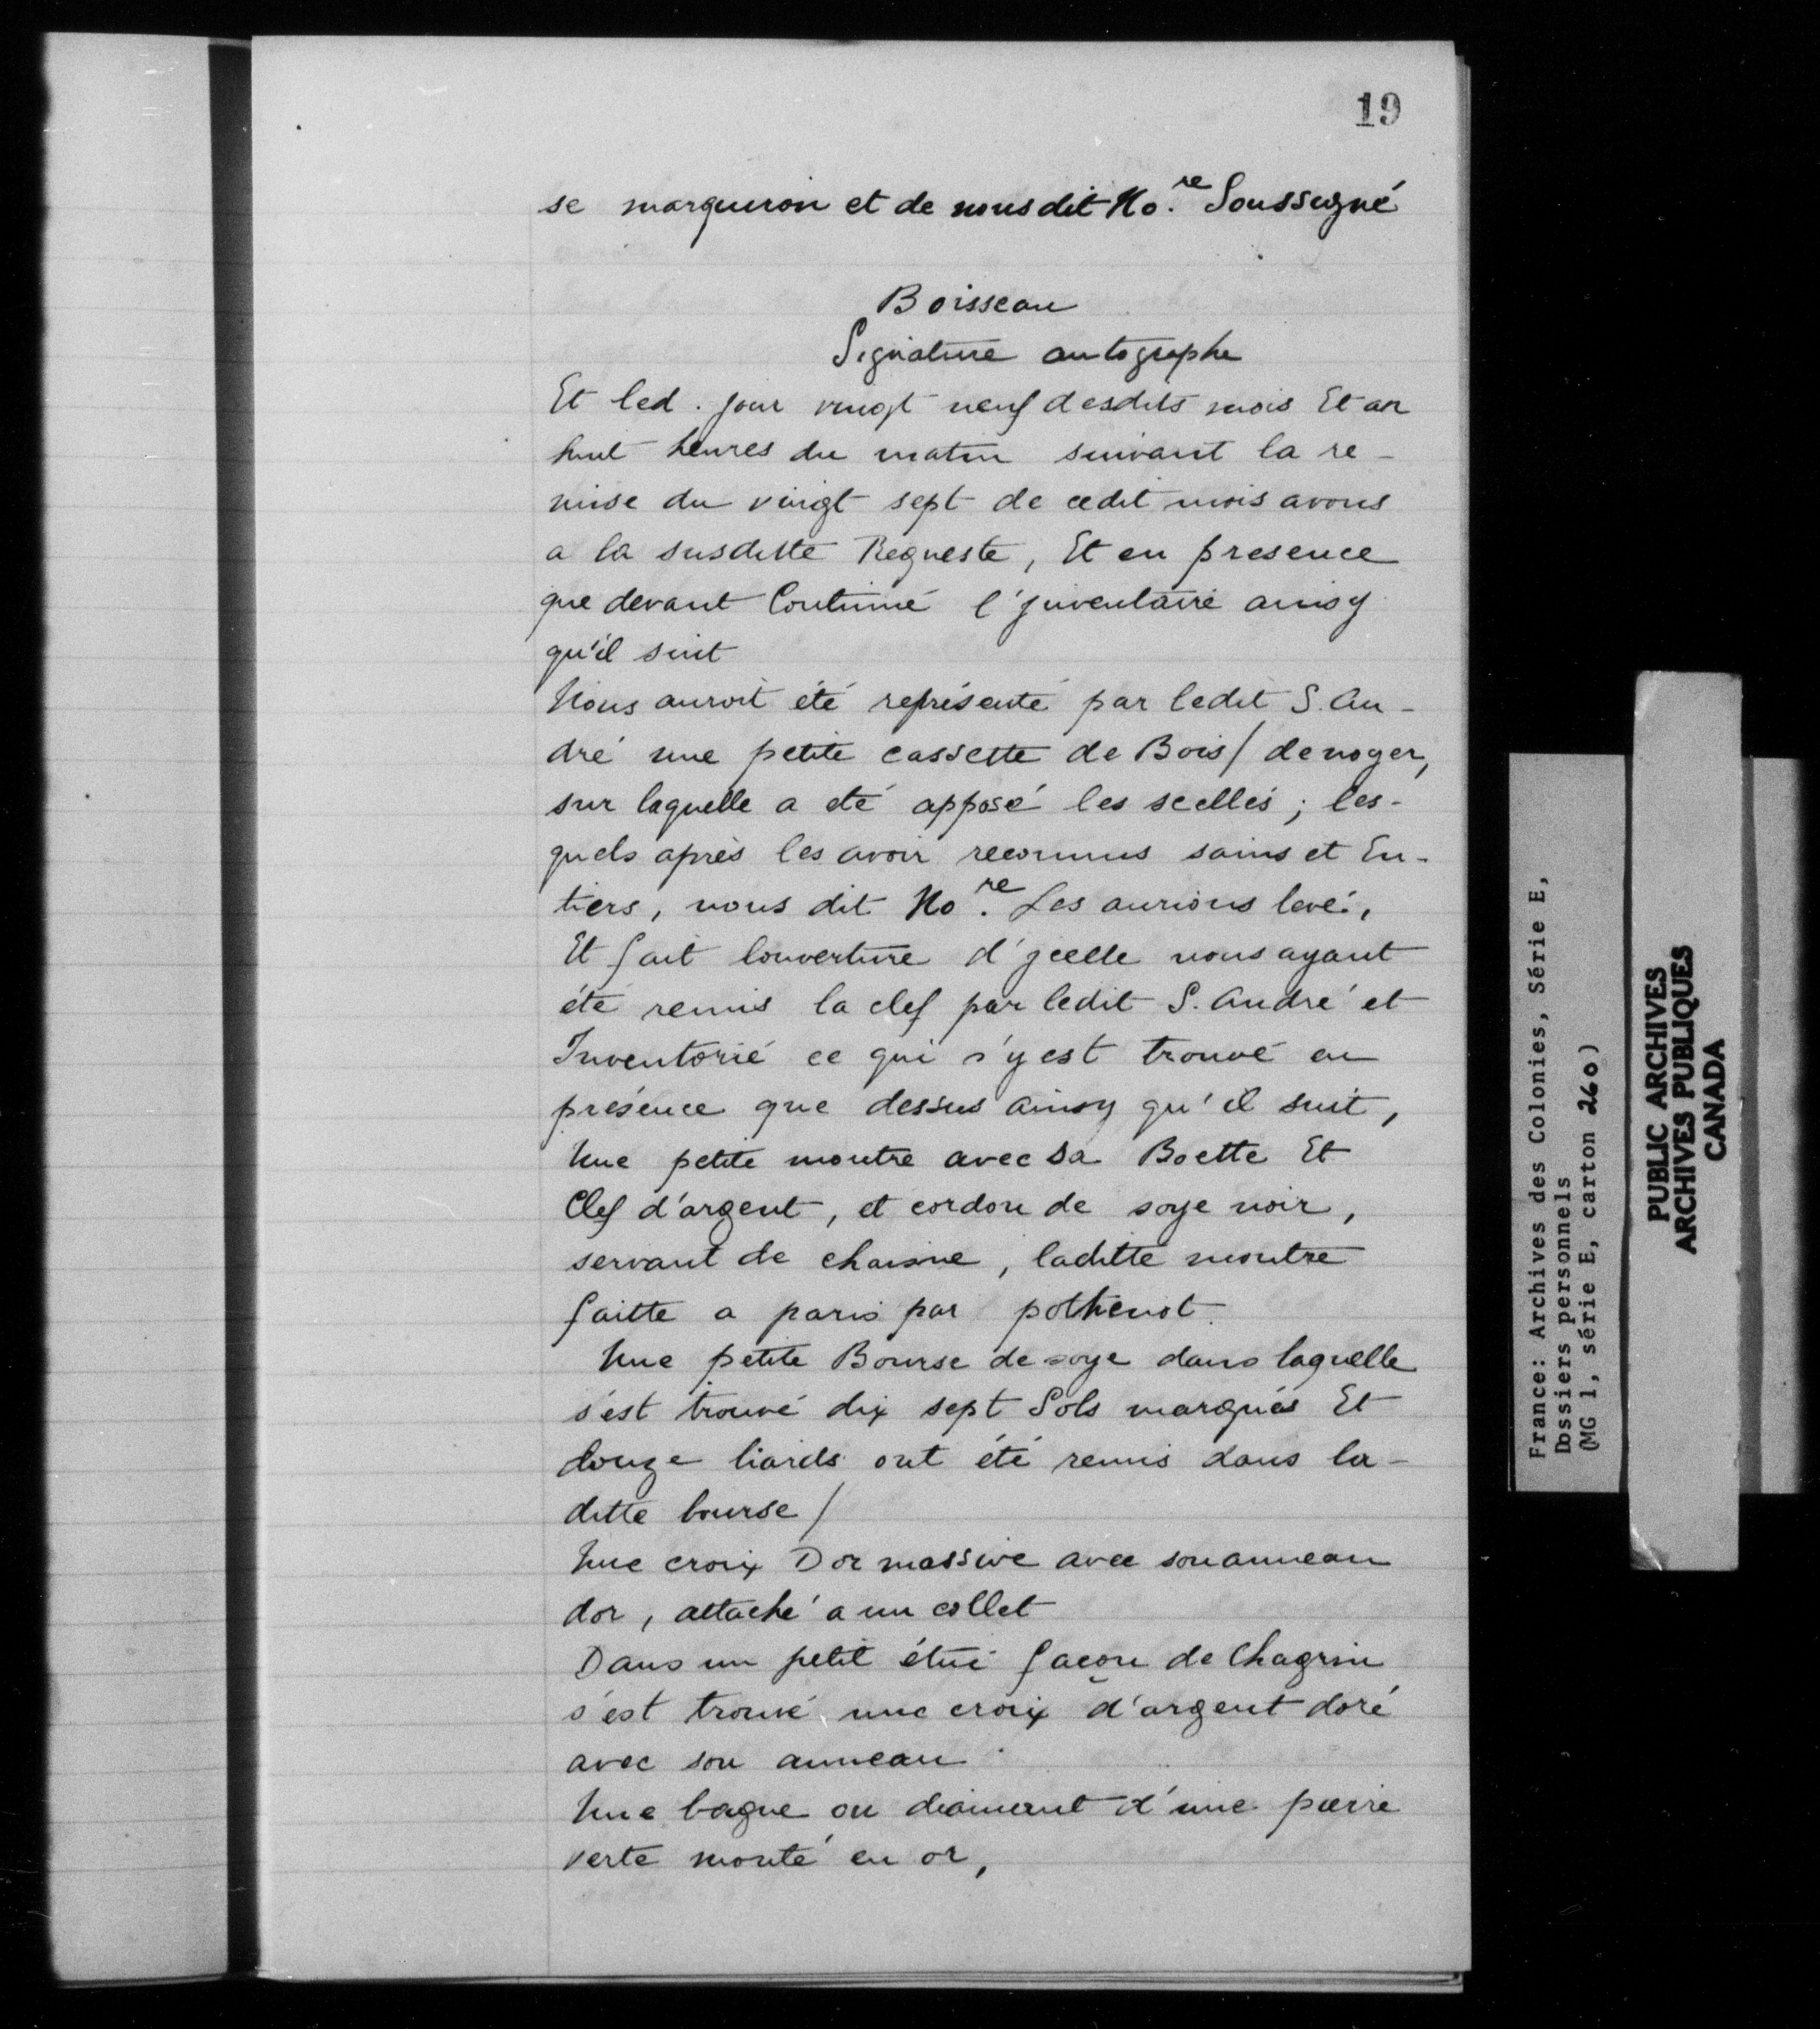 19
se marqueron et de nousdit No.re Soussigné
Boisseau
Signature autographe
Et led. jour vingt neuf desdits mois Et an
huit heures du matin suivant la re-
mise du vingt sept de cedit mois avons
a la susditte Requeste, Et en presence
que devant Continué l'jnventaire ainsy
qu'il suit
Nous auroit été représenté par ledit S. An-
dré une petite cassette de Bois / de noyer,
sur laquelle a eté apposé les scellés ; les-
quels après les avoir reconnus sains et En-
tiers, nous dit No.re Les aurions levé,
Et fait louverture d'jcelle nous ayant
été remis la clef par ledit S. André et
Inventorié ce qui s'y est trouvé en
présence que dessus ainsy qu'il suit,
Une petite montre avec sa Boette Et
Clef d'argent, et cordon de soye noir,
servant de chaisne, laditte montre
faitte a paris par pothenot.
Une petite Bourse de soye dans laquelle
s'est trouvé dix sept Sols marqués Et
douze liards ont été remis dans la-
ditte bourse /
Une croix Dor massive avec son anneau
dor, attaché a un collet
Dans un petit étui façon de Chagrin
s'est trouvé une croix d'argent doré
avec son anneau.
Une bague ou diament d'une pierre
verte monté en or,
France: Archives des Colonies, Série E,
Dossiers personnels
(MG 1, série E, carton 260)
PUBLIC ARCHIVES
ARCHIVES PUBLIQUES
CANADA